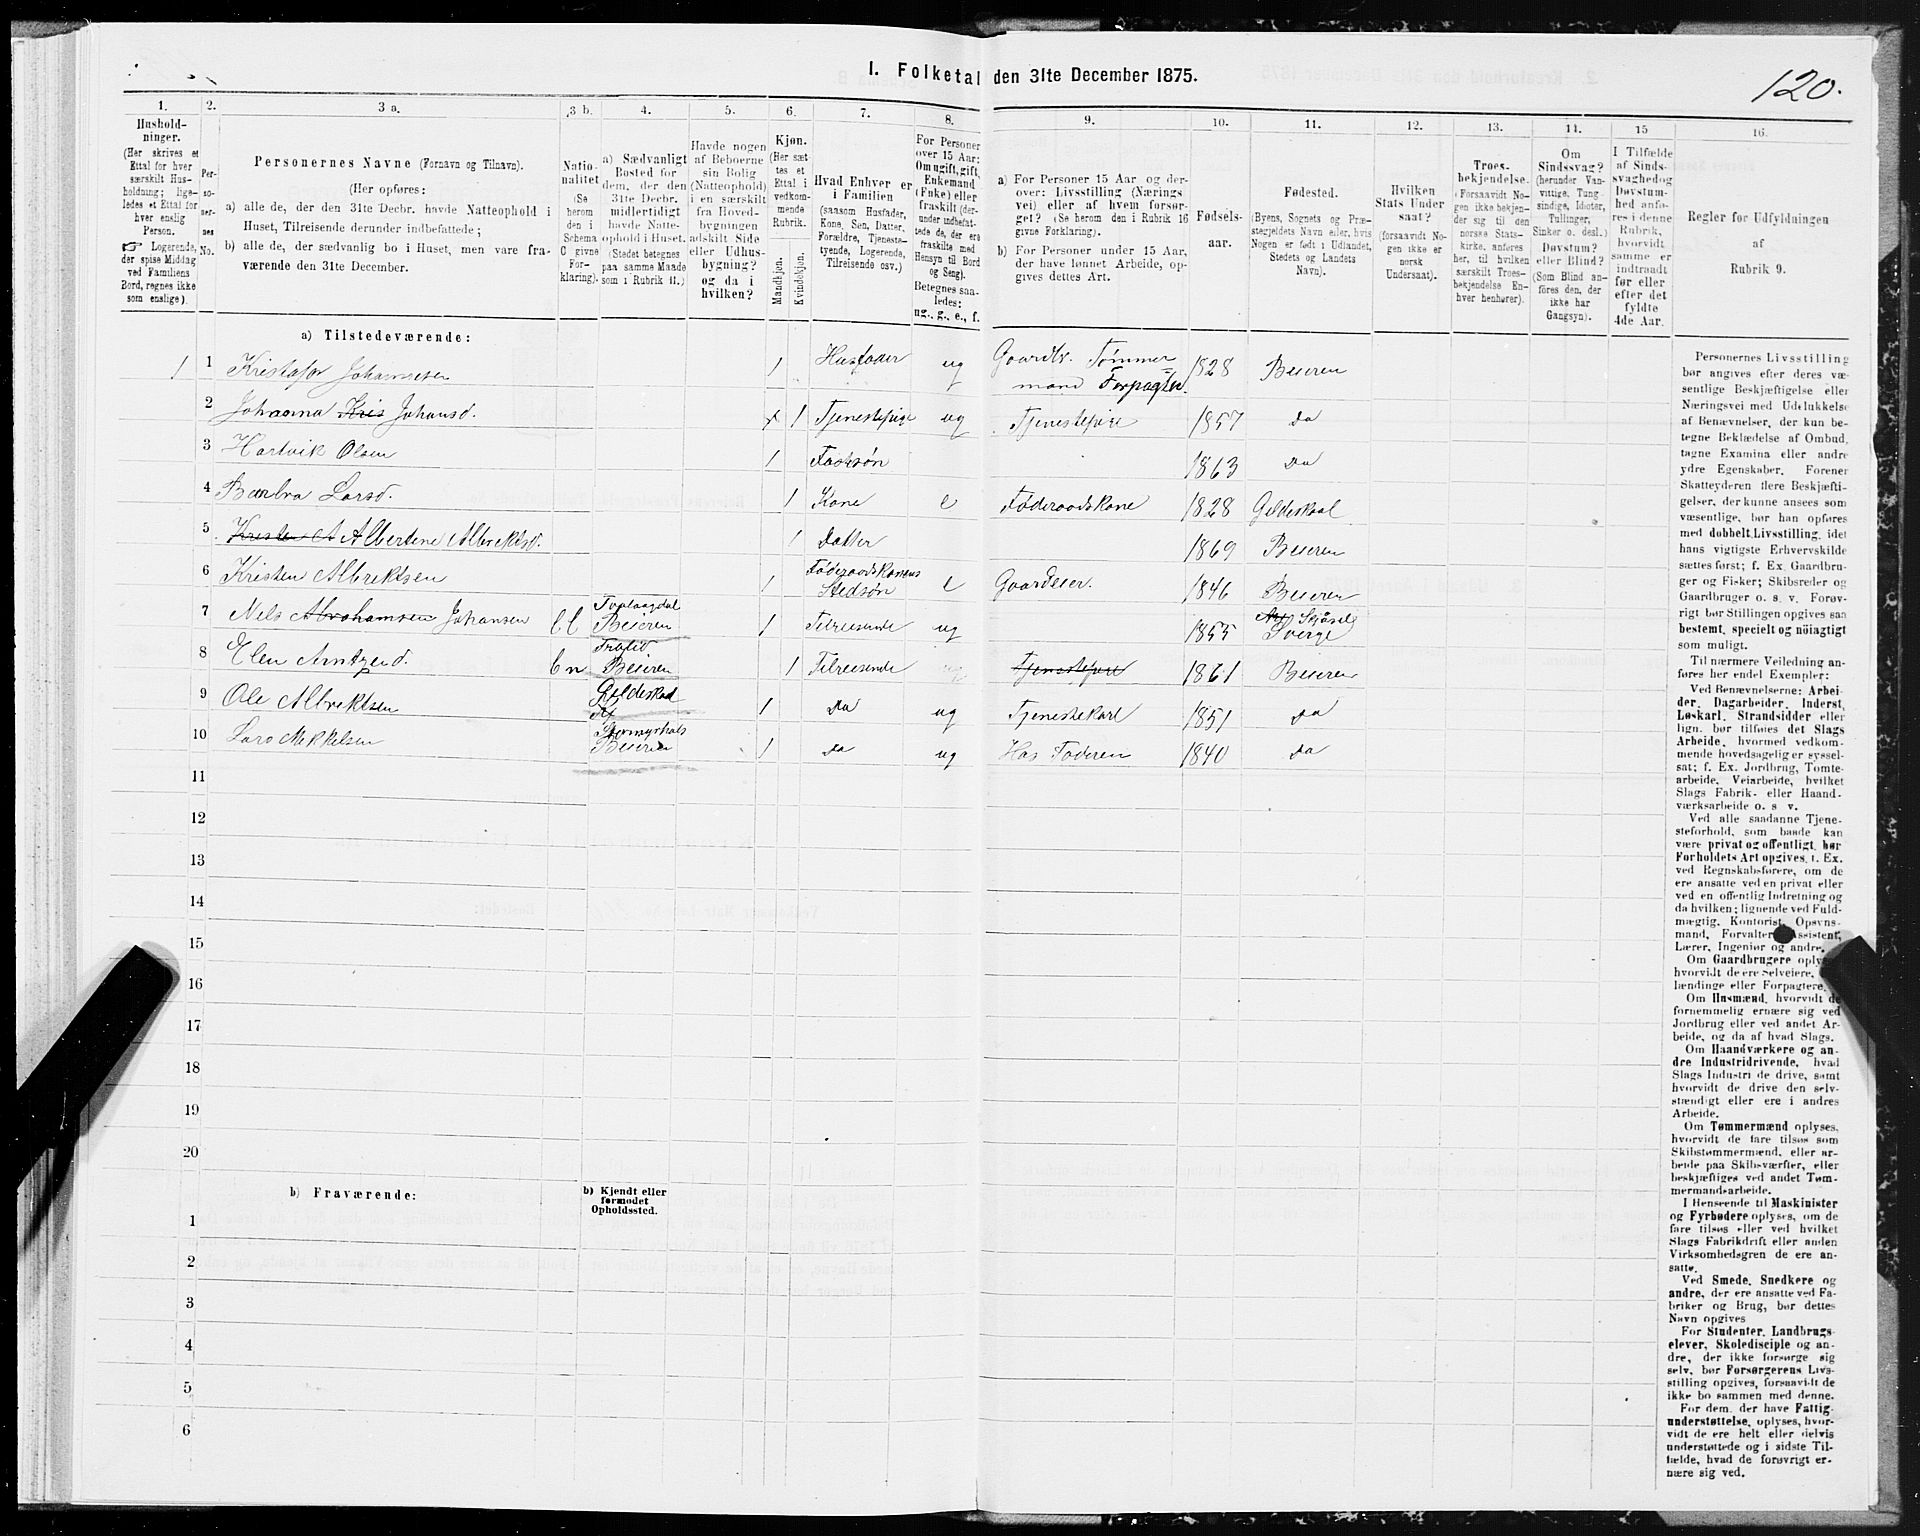 I. Folketal den 31te December 1875.
120.
1. 2. 3 a. 3 b. 4. 5. 6. 7. 8. 9. 10. 11. 12. 13. 14. 15 16.
Hushold-
ninger.
(Her skrives et
Ettal for hver
særskilt Hus-
holdning; lige-
ledes et Ettal for
hver enslig
Person.
☞ Logerende,
der spise Middag
ved Familiens
Bord, regnes ikke
som enslige).
Per-
so-
ner-
nes
No.
Personernes Navne (Fornavn og Tilnavn).
(Her opføres:
a) alle de, der den 31te Decbr. havde Natteophold i
Huset, Tilreisende derunder indbefattede;
b) alle de, der sædvanlig bo i Huset, men vare fra-
værende den 31te December.
Natio-
nalitet
(Se
herom
den i
Schema
C givne
For-
klaring).
a) Sædvanligt
Bosted for
dem, der den
31te Decbr.
midlertidigt
havde Natte-
ophold i Huset.
(Stedet betegnes
paa samme Maade
som i Rubrik 11.)
Havde nogen
af Beboerne
sin Bolig
(Natteophold)
i en særskilt
fra Hoved-
bygningen
adskilt Side
eller Udhus-
bygning?
og da i
hvilken?
Kjøn.
(Her sæt-
tes et
Ettal i
vedkom-
mende
Rubrik.
Mandkjøn.
Kvindekjøn.
Hvad Enhver er
i Familien
(saasom Husfader,
Kone, Søn, Datter,
Forældre, Tjeneste-
tyende, Logerende,
Tilreisende osv.)
For Personer
over 15 Aar:
Om ugift, gift,
Enkemand
(Enke) eller
fraskilt (der-
under indbefat-
tede de, der ere
fraskilte med
Hensyn til Bord
og Seng).
Betegnes saa-
ledes:
ug., g., e., f.
a) For Personer 15 Aar og der-
over: Livsstilling (Nærings
vei) eller af hvem forsør-
get? (Se herom den i Rubrik 16
givne Forklaring).
b) For Personer under 15 Aar,
der have lønnet Arbeide, op-
gives dettes Art.
Fødsels-
aar.
Fødested.
(Byens, Sognets og Præ-
stegjeldets Navn eller, hvis
Nogen er født i Udlandet,
Stedets og Landets
Navn).
Hvilken
Stats Under
saat?
(forsaavidt No-
gen ikke er
norsk
Undersaat).
Troes-
bekjendelse.
(Forsaavidt No-
gen ikke bekjen-
der sig til den
norske Stats-
kirke, anføres
her, til hvilken
særskilt Troes-
bekjendelse En-
hver henhører).
Om
Sindssvag?
(herunder Van-
vittige, Tung-
sindige, Idioter,
Tullinger,
Sinker o. desl.)
Døvstum?
eller Blind?
(Som Blind an-
føres den, der
ikke har
Gangsyn).
I Tilfælde
af Sinds-
svaghed og
Døvstum-
hed anfø-
res i denne
Rubrik,
hvorvidt
samme er
indtraadt
før eller
efter det
fyldte
4de Aar.
Regler for Udfyldningen
af
Rubrik 9.
a) Tilstedeværende:
1 1 Kristofor Johannesen 1 Husfader ug Gaardbr. Tømmer
mand Forpagter. 1828 Beieren
2 Johanna Kris Johansd. 1 Tjenestepige ug Tjenestepige 1857 Do
3 Hartvik Olsen 1 Fostsøn 1863 Do
4 Barbra Larsd. 1 Kone e Føderaadskone 1828 Gildeskaal
5 Kristen A Albertine Albrektsd. 1 Datter 1869 Beieren
6 Kristen Albrektsen 1 Føderaadskonens
Stedsøn e Gaardeier. 1846 Beieren
7 Nils Abrahamsen Johansen Beieren 1 Tilreisende ug 1855 Sverge
8 Elen Arntzend. bn Beieren 1 Tilreisende ug Tjenestepige 1861 Beieren
9 Ole Albrektsen Gildeskaal 1 Do ug Tjenestekarl 1851 Do
10 Lars Mikkelsen Beieren 1 Do ug Hos Faderen 1840 Do
11
12
13
14
15
16
17
18
19
20
b) Fraværende: b) Kjendt eller
formodet
Opholdssted.
1
2
3
4
5
6
Personernes Livsstilling
bør angives efter deres væ-
sentlige Beskjæftigelse eller
Næringsvei med Udelukkelse
af Benævnelser, der kun be-
tegne Beklædelse af Ombud,
tagne Examina eller andre
ydre Egenskaber. Forener
Skatteyderen flere Beskjæfti-
gelser, der kunne ansees som
væsentlige, bør han opføres
med dobbelt Livsstilling, idet
hans vigtigste Erhvervskilde
sættes først; f. Ex. Gaardbru-
ger og Fisker; Skibsreder og
Gaardbruger o. s. v. Forøv-
rigt bør Stillingen opgives saa
bestemt, specielt og nøiagtigt
som muligt.
Til nærmere Veiledning an-
føres her endel Exempler:
Ved Benævnelserne: Arbei-
der, Dagarbeider, Inderst,
Løskarl, Strandsidder eller
lign. bør tilføies det Slags
Arbeide, hvormed vedkom-
mende hovedsagelig er syssel-
sat; f. Ex. Jordbrug, Tomte-
arbeide, Veiarbeide, hvilket
Slags Fabrik- eller Haand-
værksarbeide o. s v.
Ved alle saadanne Tjene-
steforhold, som baade kan
være privat og offentligt, bør
Forholdets Art opgives, f. Ex.
ved Regnskabsførere, om de
ere ansatte ved en privat eller
ved en offentlig Indretning og
da hvilken; lignende ved Fuld-
mægtig, Kontorist, Opsyns-
mand, Forvalter, Assistent,
Lærer, Ingeniør og andre.
Om Gaardbrugere oplyses,
hvorvidt de ere Selveiere,
lændinge eller Forpagtere.
Om Husmænd, hvorvidt de
fornemmelig ernære sig ved
Jordbrug eller ved andet Ar-
beide, og da af hvad Slags.
Om Haandværkere og an-
dre Industridrivende, hvad
Slags Industri de drive, samt
hvorvidt de drive den selv-
stændigt eller ere i andres
Arbeide.
Om Tømmermænd oplyses,
hvorvidt de fare tilsøs som
Skibstømmermænd, eller ar-
beide paa Skibsværfter, eller
beskjæftiges ved andet Tøm-
mermandsarbeide.
I Henseende til Maskinister
og Fyrbødere oplyses, om de
fare tilsøs eller ved hvilket
Slags Fabrikdrift eller anden
Virksomhedsgren de ere an-
satte.
Ved Smede, Snedkere og
andre, der ere ansatte ved Fa-
briker og Brug, bør dettes
Navn opgives
For Studenter, Landbrugs-
elever, Skoledisciple og an-
dre, der ikke forsørge sig
selv, bør Forsørgerens Livs-
stilling opgives, forsaavidt de
ikke bo sammen med denne.
For dem, der have Fattig-
understøttelse, oplyses, hvor-
vidt de ere helt eller delvis
understøttede og i sidste Til-
fælde, hvad de forøvrigt er-
nære sig ved.